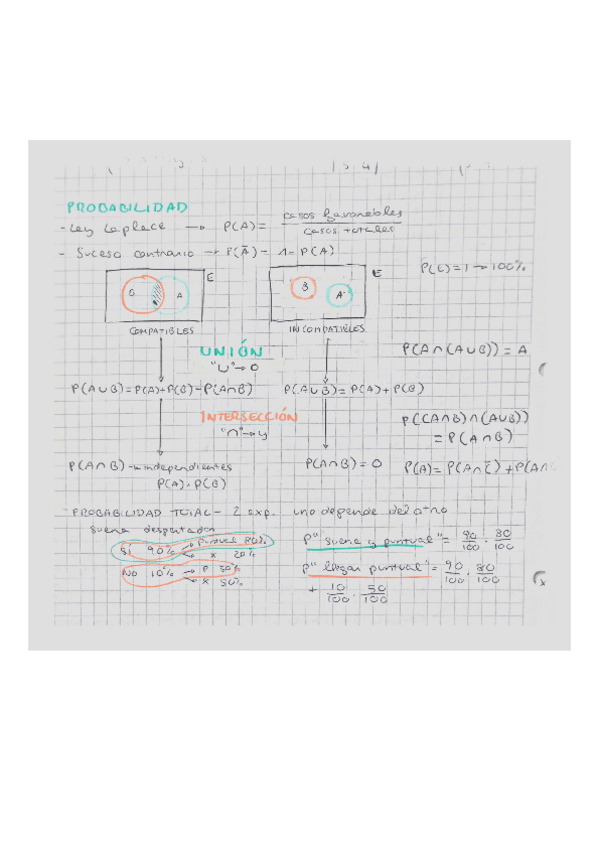 PROBABILIDAD
- Ley Laplace → P(A) = casos favorables / casos totales
- Suceso contrario → P(Ā) = 1 - P(A)
P(E) = 1 → 100%
E
B
A
E
B
A
COMPATIBLES
INCOMPATIBLES
UNIÓN
"∪" → O
P(A∩(A∪B)) = A
P(A∪B) = P(A) + P(B) - P(A∩B)
P(A∪B) = P(A) + P(B)
INTERSECCIÓN
"∩" → y
P((A∩B)∩(A∪B))
= P(A∩B)
P(A∩B) → independientes
P(A) · P(B)
P(A∩B) = 0
P(A) = P(A∩C̄) + P(A∩
PROBABILIDAD TOTAL - 2 exp. uno depende del otro
suena despertador
Sí 90% → puntual 80%
→ x 20%
NO 10% → P 50%
→ x 50%
P "suena y puntual" = 90/100 · 80/100
P "llegar puntual" = 90/100 · 80/100
+ 10/100 · 50/100